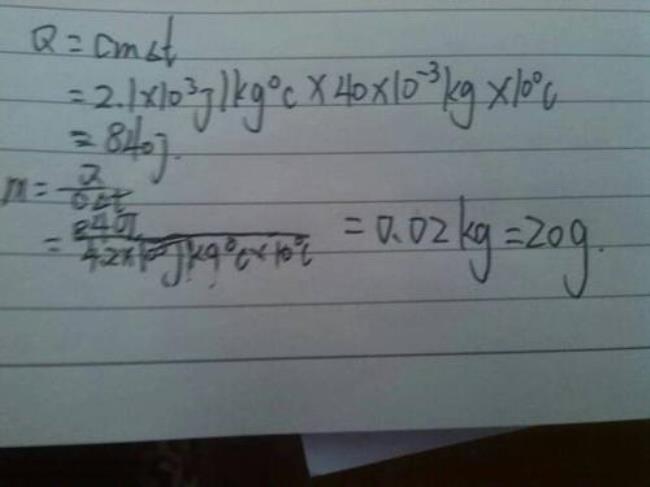 Q = cm△t
= 2.1×10³J/kg°C × 40×10⁻³kg × 10°C
= 840J.
m = Q/c△t
= 840J/4.2×10³J/kg°C×10°C = 0.02kg = 20g.